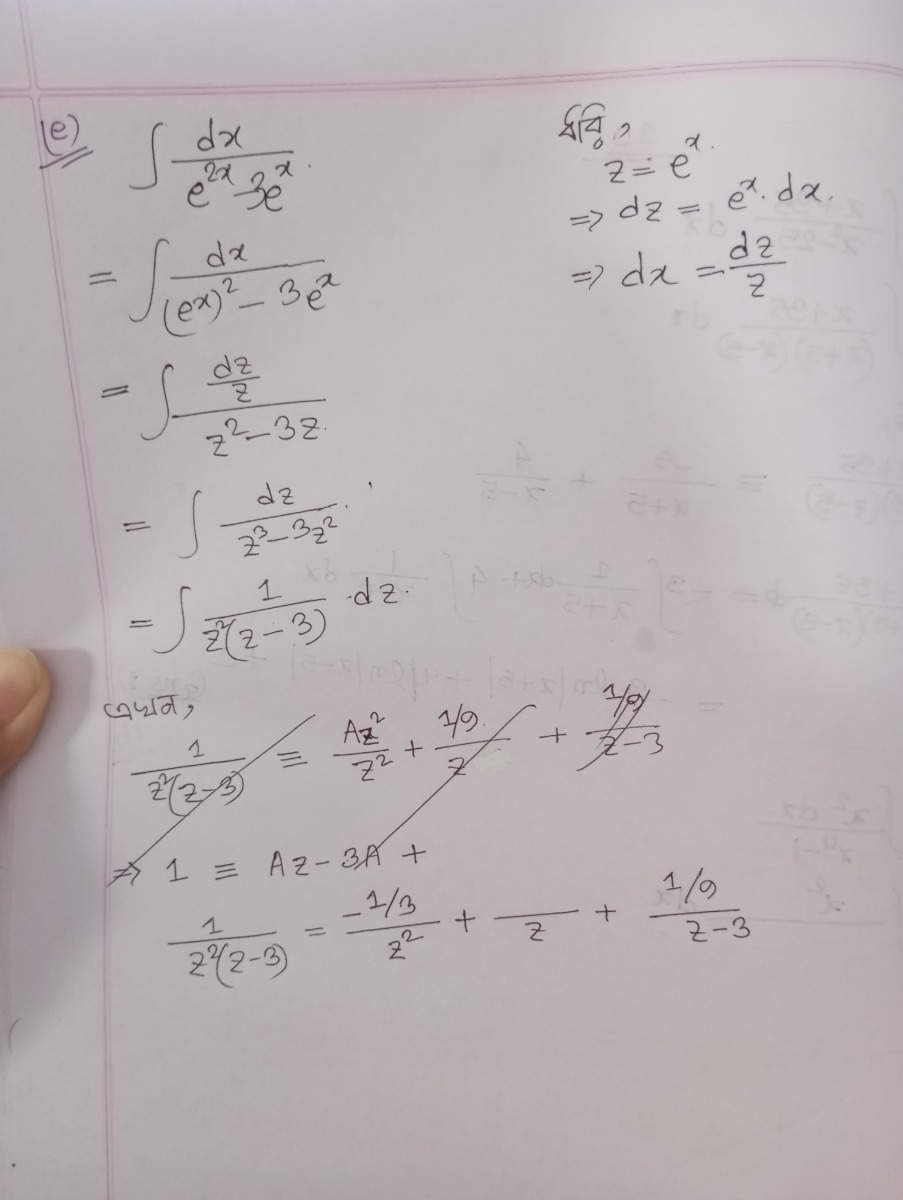 (e) ∫ dx / (e^{2x} - 3e^x)
ধরি,
z = e^x
⇒ dz = e^x · dx.
⇒ dx = dz/z
= ∫ dx / ((e^x)^2 - 3e^x)
= ∫ (dz/z) / (z^2 - 3z)
= ∫ dz / (z^3 - 3z^2)
= ∫ 1 / (z^2(z-3)) · dz.
এখন,
1 / (z^2(z-3)) ≡ Az^2 / z^2 + (1/9) / z + (1/9) / (z-3)
⇒ 1 ≡ Az - 3A +
1 / (z^2(z-3)) = (-1/3) / z^2 + — / z + (1/9) / (z-3)